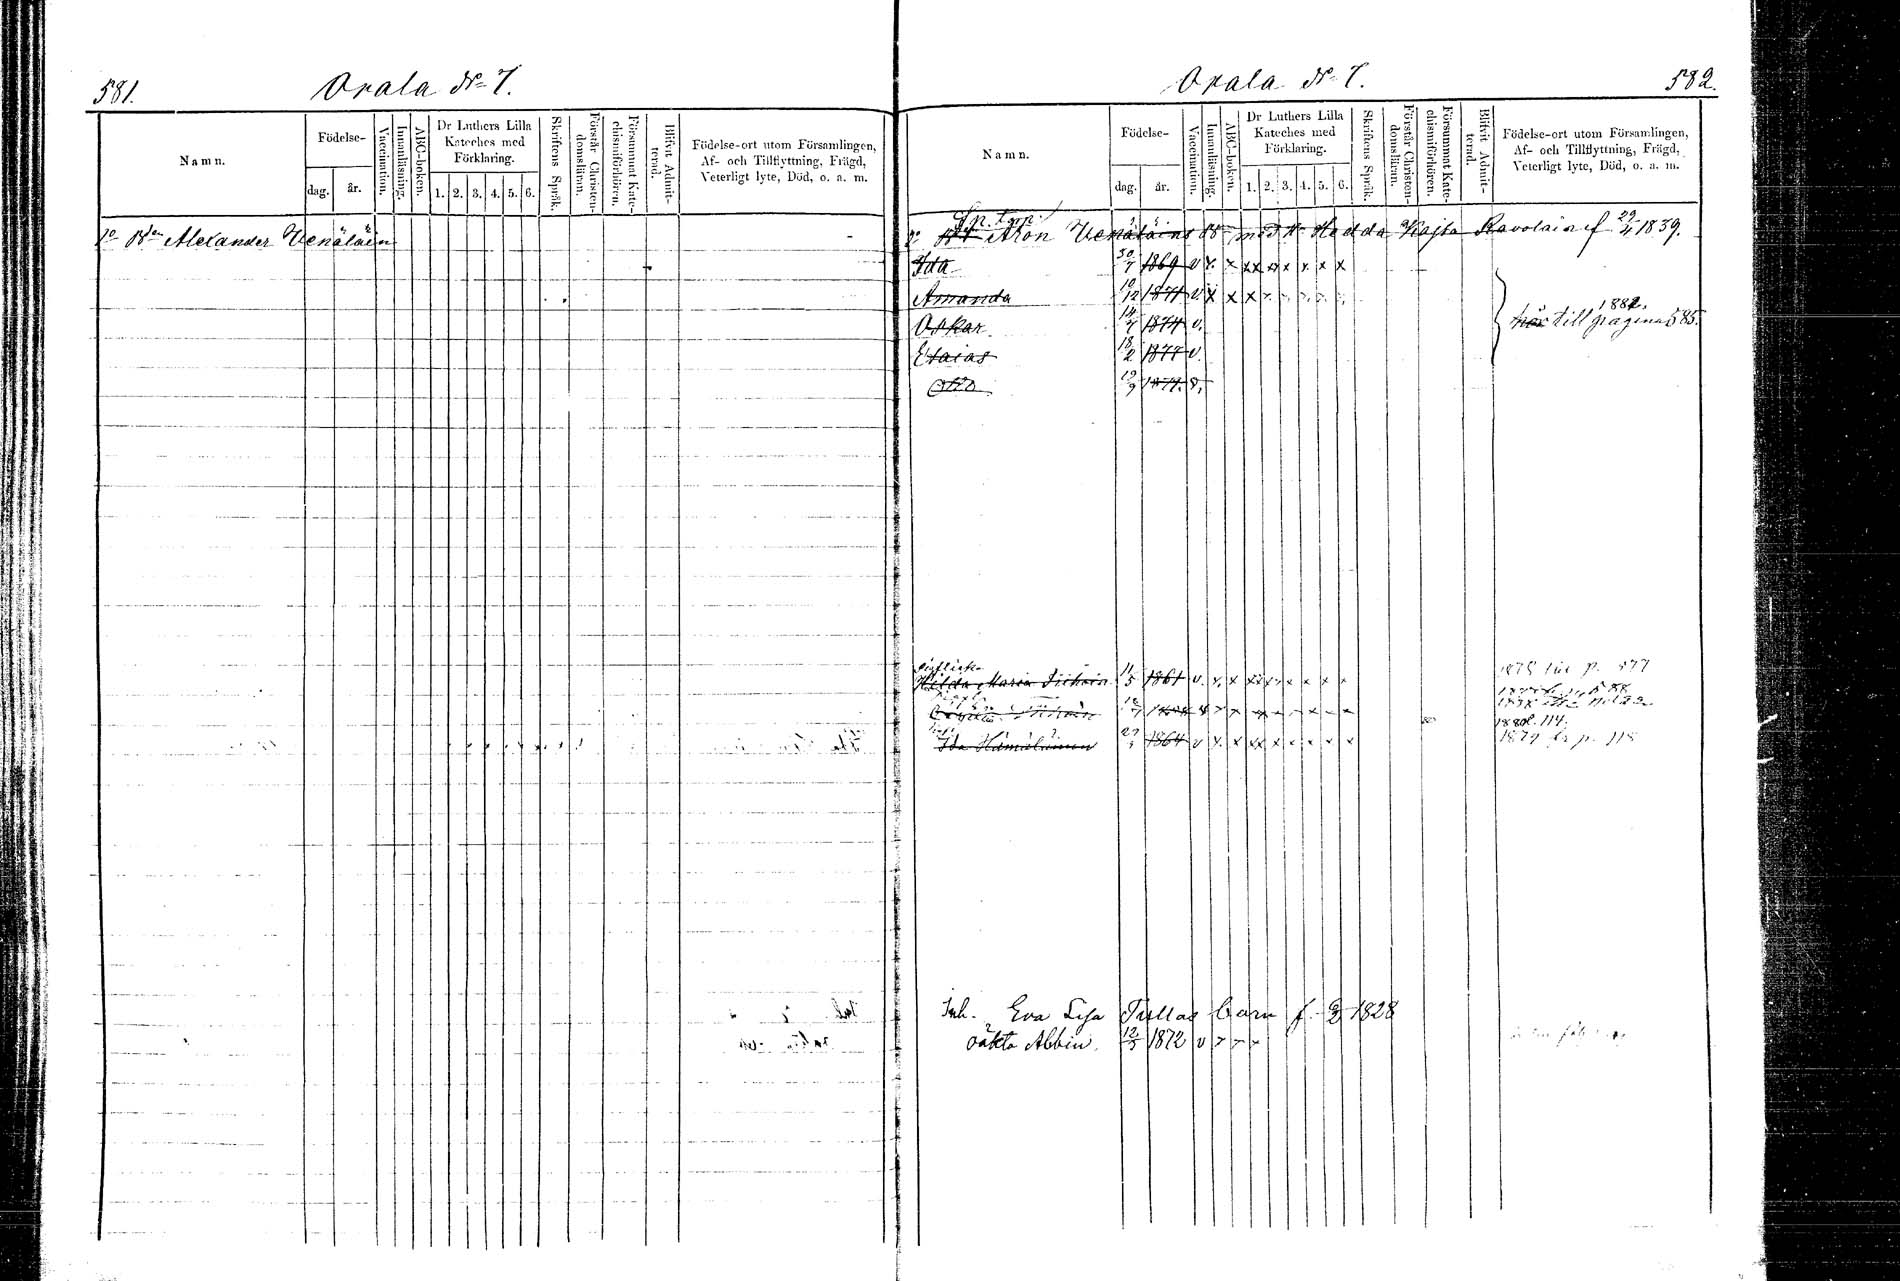 581.
Orala No 7.
Namn.
Födelse-
dag.
år.
Vaccination.
Innanläsning.
ABC-boken.
Dr Luthers Lilla
Kateches med
Förklaring.
1. 2. 3. 4. 5. 6.
Skriftens Språk.
Förstår Christen-
domsläran.
Försummat Kate-
chismiförhören.
Blifvit Admit-
terad.
Födelse-ort utom Församlingen,
Af- och Tillflyttning, Frägd,
Veterligt lyte, Död, o. a. m.
Alexander Venäläin
582.
Orala No 7.
Namn.
Födelse-
dag.
år.
Vaccination.
Innanläsning.
ABC-boken.
Dr Luthers Lilla
Kateches med
Förklaring.
1. 2. 3. 4. 5. 6.
Skriftens Språk.
Förstår Christen-
domsläran.
Försummat Kate-
chismiförhören.
Blifvit Admit-
terad.
Födelse-ort utom Församlingen,
Af- och Tillflyttning, Frägd,
Veterligt lyte, Död, o. a. m.
Aron Venäläins med Hedda Kajsa Ravolain f 29/4 1839.
Ida 30/7 1869 v x. x xx xx x x. x x
Amanda 10/12 1871 v. x x x
Oskar 14/7 1874 v.
1882.
till pagina 585.
Esaias 18/2 1877 v.
Otto 19/9 1879. v.
Hilda Maria 11/5 1861 v. x. x xx x x x x x
1878 p. 577
1880 p. 114.
Ida Hämäläinen 1864 v x. x xx x x x x x
1879 p. 118
Inh. Eva Lisa Tullas barn f. 2/2 1828
oäkta Albin. 12/3 1872 v